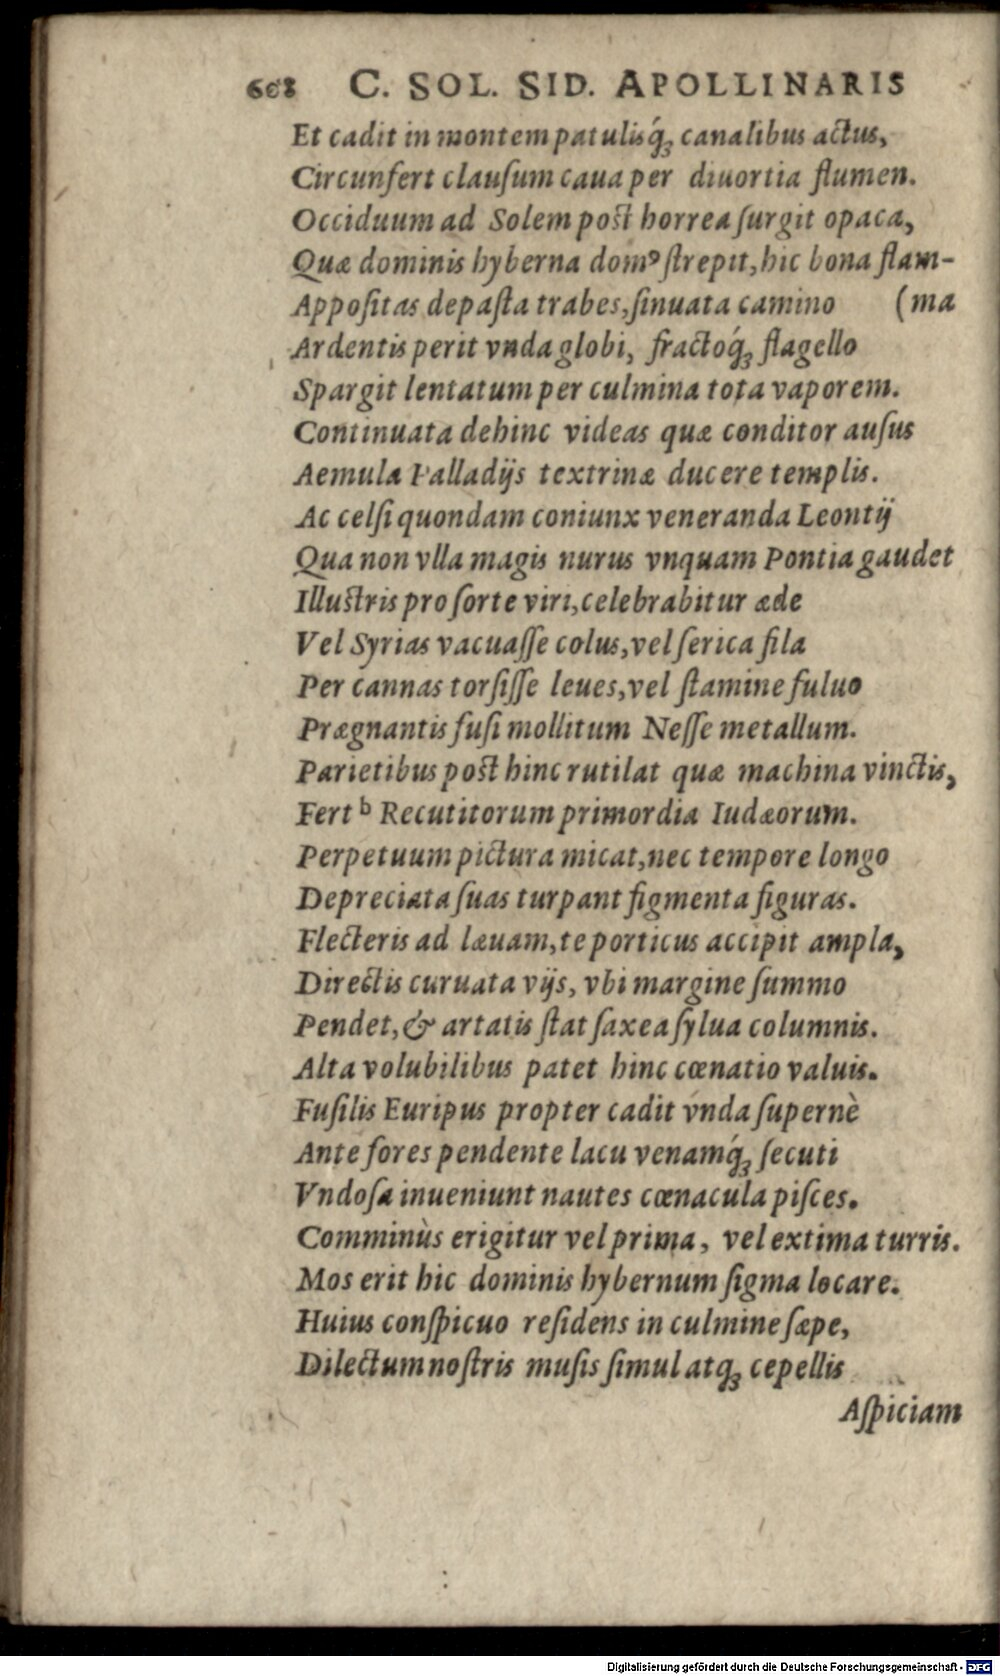 608 C. SOL. SID. APOLLINARIS
Et cadit in montem patulisq́ꝫ canalibus actus,
Circunfert clauſum caua per diuortia flumen.
Occiduum ad Solem post horrea ſurgit opaca,
Quæ dominis hyberna domꝰ ſtrepit, hic bona flam-
Appoſitas depaſta trabes, ſinuata camino (ma
Ardentis perit vnda globi, fractoq́ꝫ flagello
Spargit lentatum per culmina tota vaporem.
Continuata dehinc videas quæ conditor auſus
Aemula Palladijs textrinæ ducere templis.
Ac celſi quondam coniunx veneranda Leontij
Qua non vlla magis nurus vnquam Pontia gaudet
Illustris pro ſorte viri, celebrabitur æde
Vel Syrias vacuaſſe colus, vel ſerica fila
Per cannas torſiſſe leues, vel ſtamine fuluo
Prægnantis fuſi mollitum Neſſe metallum.
Parietibus post hinc rutilat quæ machina vinctis,
Fert b Recutitorum primordia Iudæorum.
Perpetuum pictura micat, nec tempore longo
Depreciata ſuas turpant figmenta figuras.
Flecteris ad læuam, te porticus accipit ampla,
Directis curuata vijs, vbi margine ſummo
Pendet, & artatis ſtat ſaxea ſylua columnis.
Alta volubilibus patet hinc cœnatio valuis.
Fuſilis Euripus propter cadit vnda ſupernè
Ante fores pendente lacu venamq́ꝫ ſecuti
Vndoſa inueniunt nautes cœnacula piſces.
Comminùs erigitur vel prima, vel extima turris.
Mos erit hic dominis hybernum ſigma locare.
Huius conſpicuo reſidens in culmine ſæpe,
Dilectum noſtris muſis ſimul atqꝫ cepellis
Aſpiciam
Digitalisierung gefördert durch die Deutsche Forschungsgemeinschaft - DFG